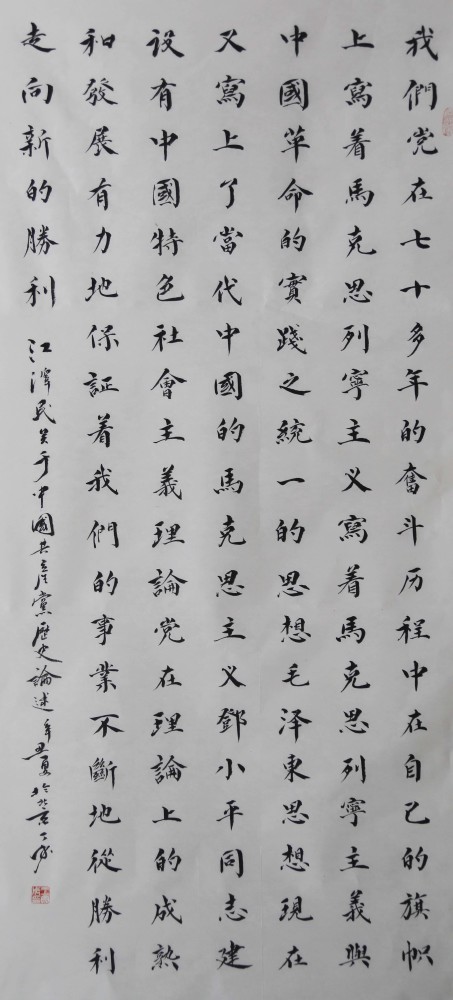 我們党在七十多年的奮斗历程中在自己的旗帜
上寫着馬克思列寧主义寫着馬克思列寧主義與
中國革命的實踐之統一的思想毛泽東思想現在
又寫上了當代中國的馬克思主义鄧小平同志建
设有中國特色社會主義理論党在理論上的成熟
和發展有力地保証着我們的事業不斷地從勝利
走向新的勝利 江澤民关于中國共產黨歷史論述 辛丑夏於